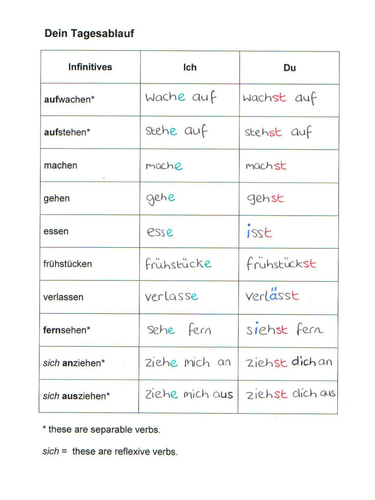 Dein Tagesablauf
Infinitives Ich Du
aufwachen* wache auf wachst auf
aufstehen* stehe auf stehst auf
machen mache machst
gehen gehe gehst
essen esse isst
frühstücken frühstücke frühstückst
verlassen verlasse verlässt
fernsehen* sehe fern siehst fern
sich anziehen* ziehe mich an ziehst dich an
sich ausziehen* ziehe mich aus ziehst dich aus
* these are separable verbs.
sich = these are reflexive verbs.